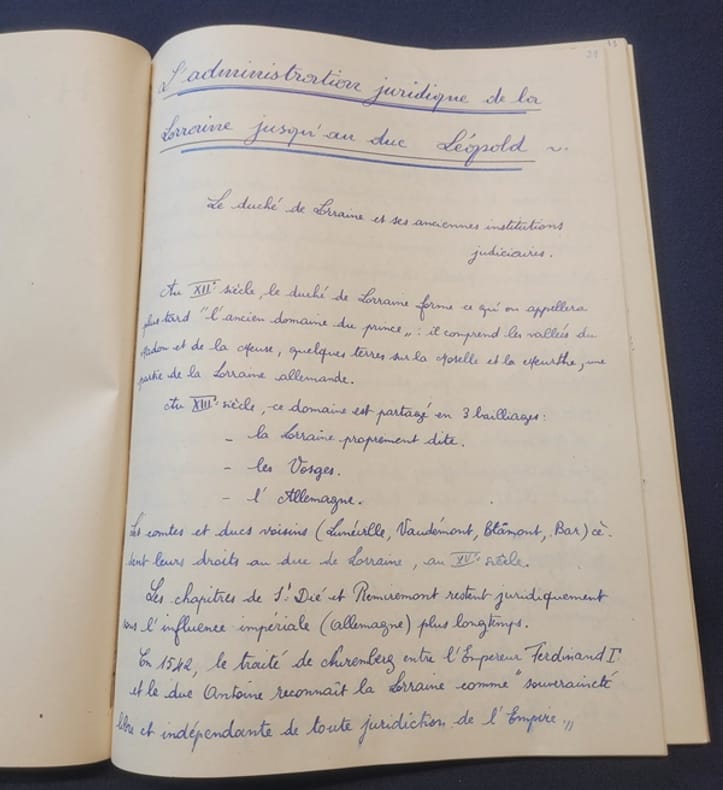 L'administration juridique de la
Lorraine jusqu'au duc Léopold ~.
Le duché de Lorraine et ses anciennes institutions
judiciaires.
Au XIIe siècle, le duché de Lorraine forme ce qu'on appellera
plus tard "l'ancien domaine du prince" : il comprend les vallées du
Madon et de la Meuse, quelques terres sur la Moselle et la Meurthe, une
partie de la Lorraine allemande.
Au XIIIe siècle, ce domaine est partagé en 3 bailliages :
- la Lorraine proprement dite.
- les Vosges.
- l'Allemagne.
Les comtes et ducs voisins (Lunéville, Vaudémont, Blâmont, Bar) cè-
dent leurs droits au duc de Lorraine, au XVe siècle.
Les chapitres de St Dié et Remiremont restent juridiquement
sous l'influence impériale (allemagne) plus longtemps.
En 1542, le traité de Nuremberg entre l'Empereur Ferdinand Ier
et le duc Antoine reconnaît la Lorraine comme "souveraineté
libre et indépendante de toute juridiction de l'Empire."